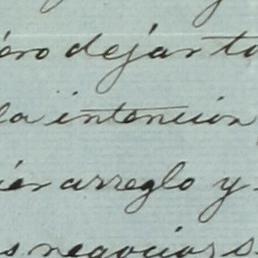 ero dejar to
la intencion
ier arreglo y
s negocios s